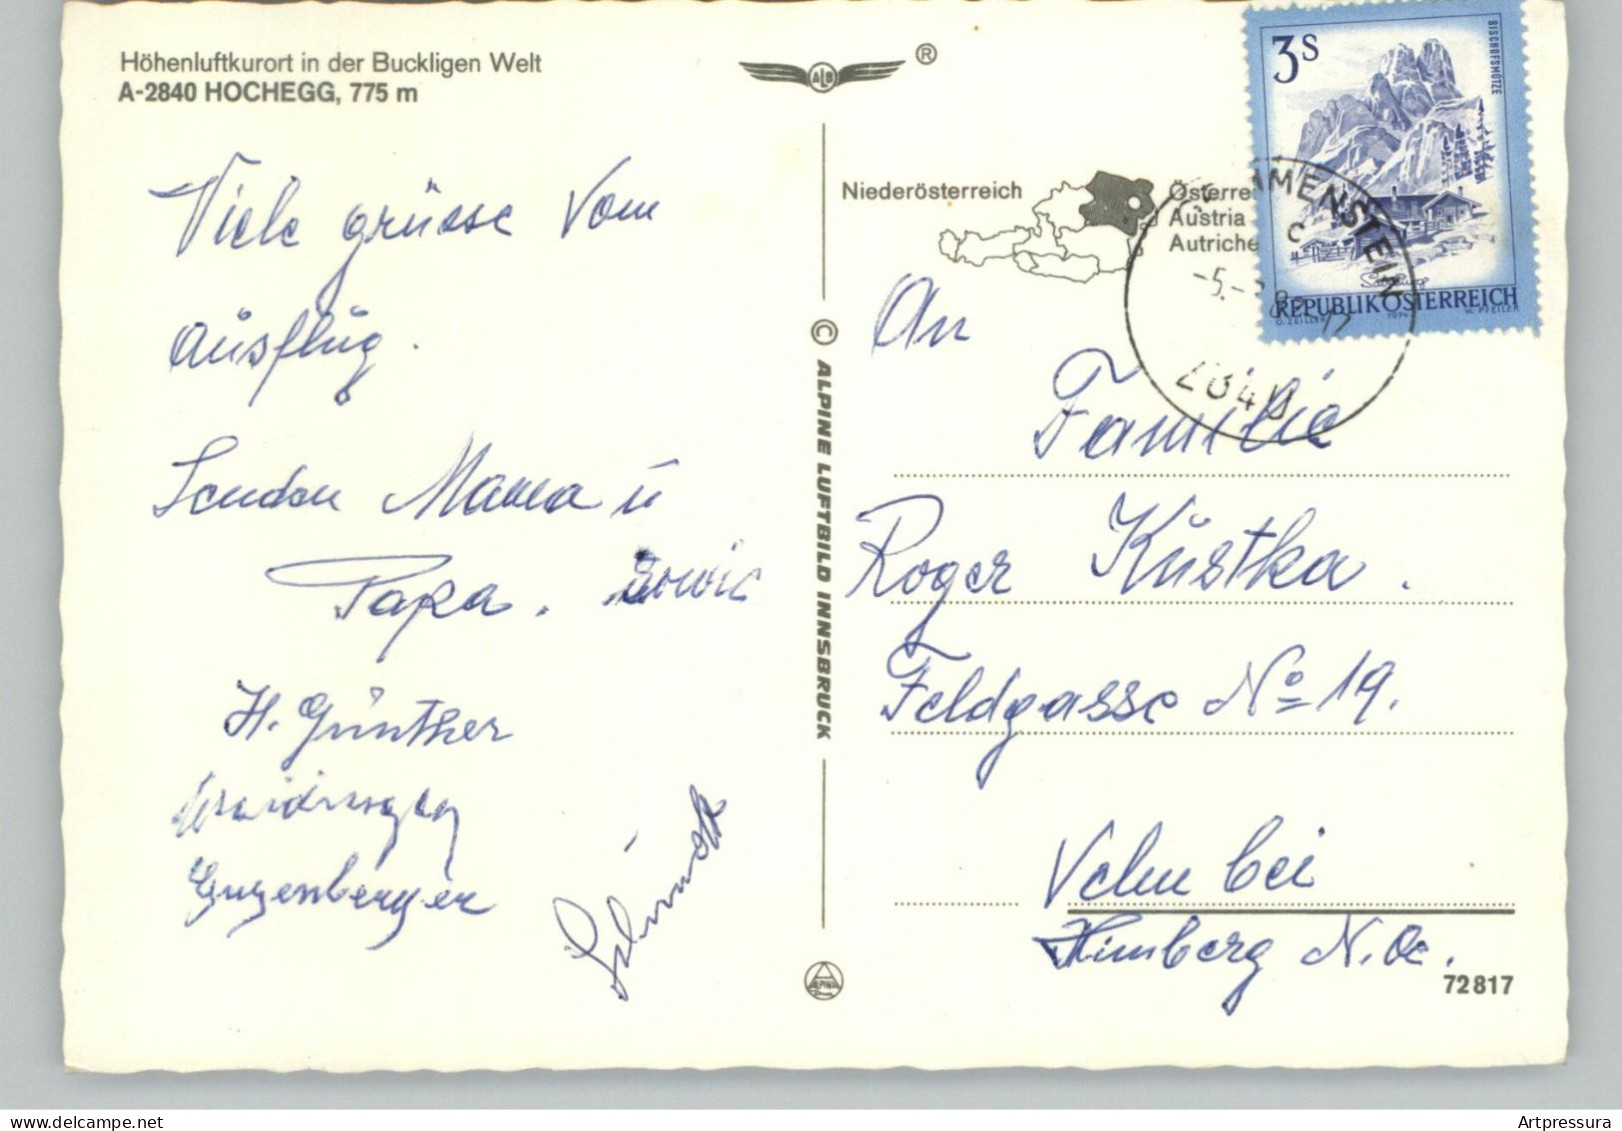 Höhenluftkurort in der Buckligen Welt
A-2840 HOCHEGG, 775 m
Viele grüsse vom
Ausflug.
Senden Mama u
Papa. sowie
H. Günther
ALB ®
© ALPINE LUFTBILD INNSBRUCK
ALPINE
Niederösterreich
Österre
Austria
Autriche
3S
BISCHOFSMÜTZE
REPUBLIK ÖSTERREICH
O. ZEILLER 1974 W. PFEILER
MENSTEIN
2840
An
Familie
Roger Kustka.
Feldgasse No 19.
Velm bei
Himberg N.Oe.
72 817
www.delcampe.net
Artpressura